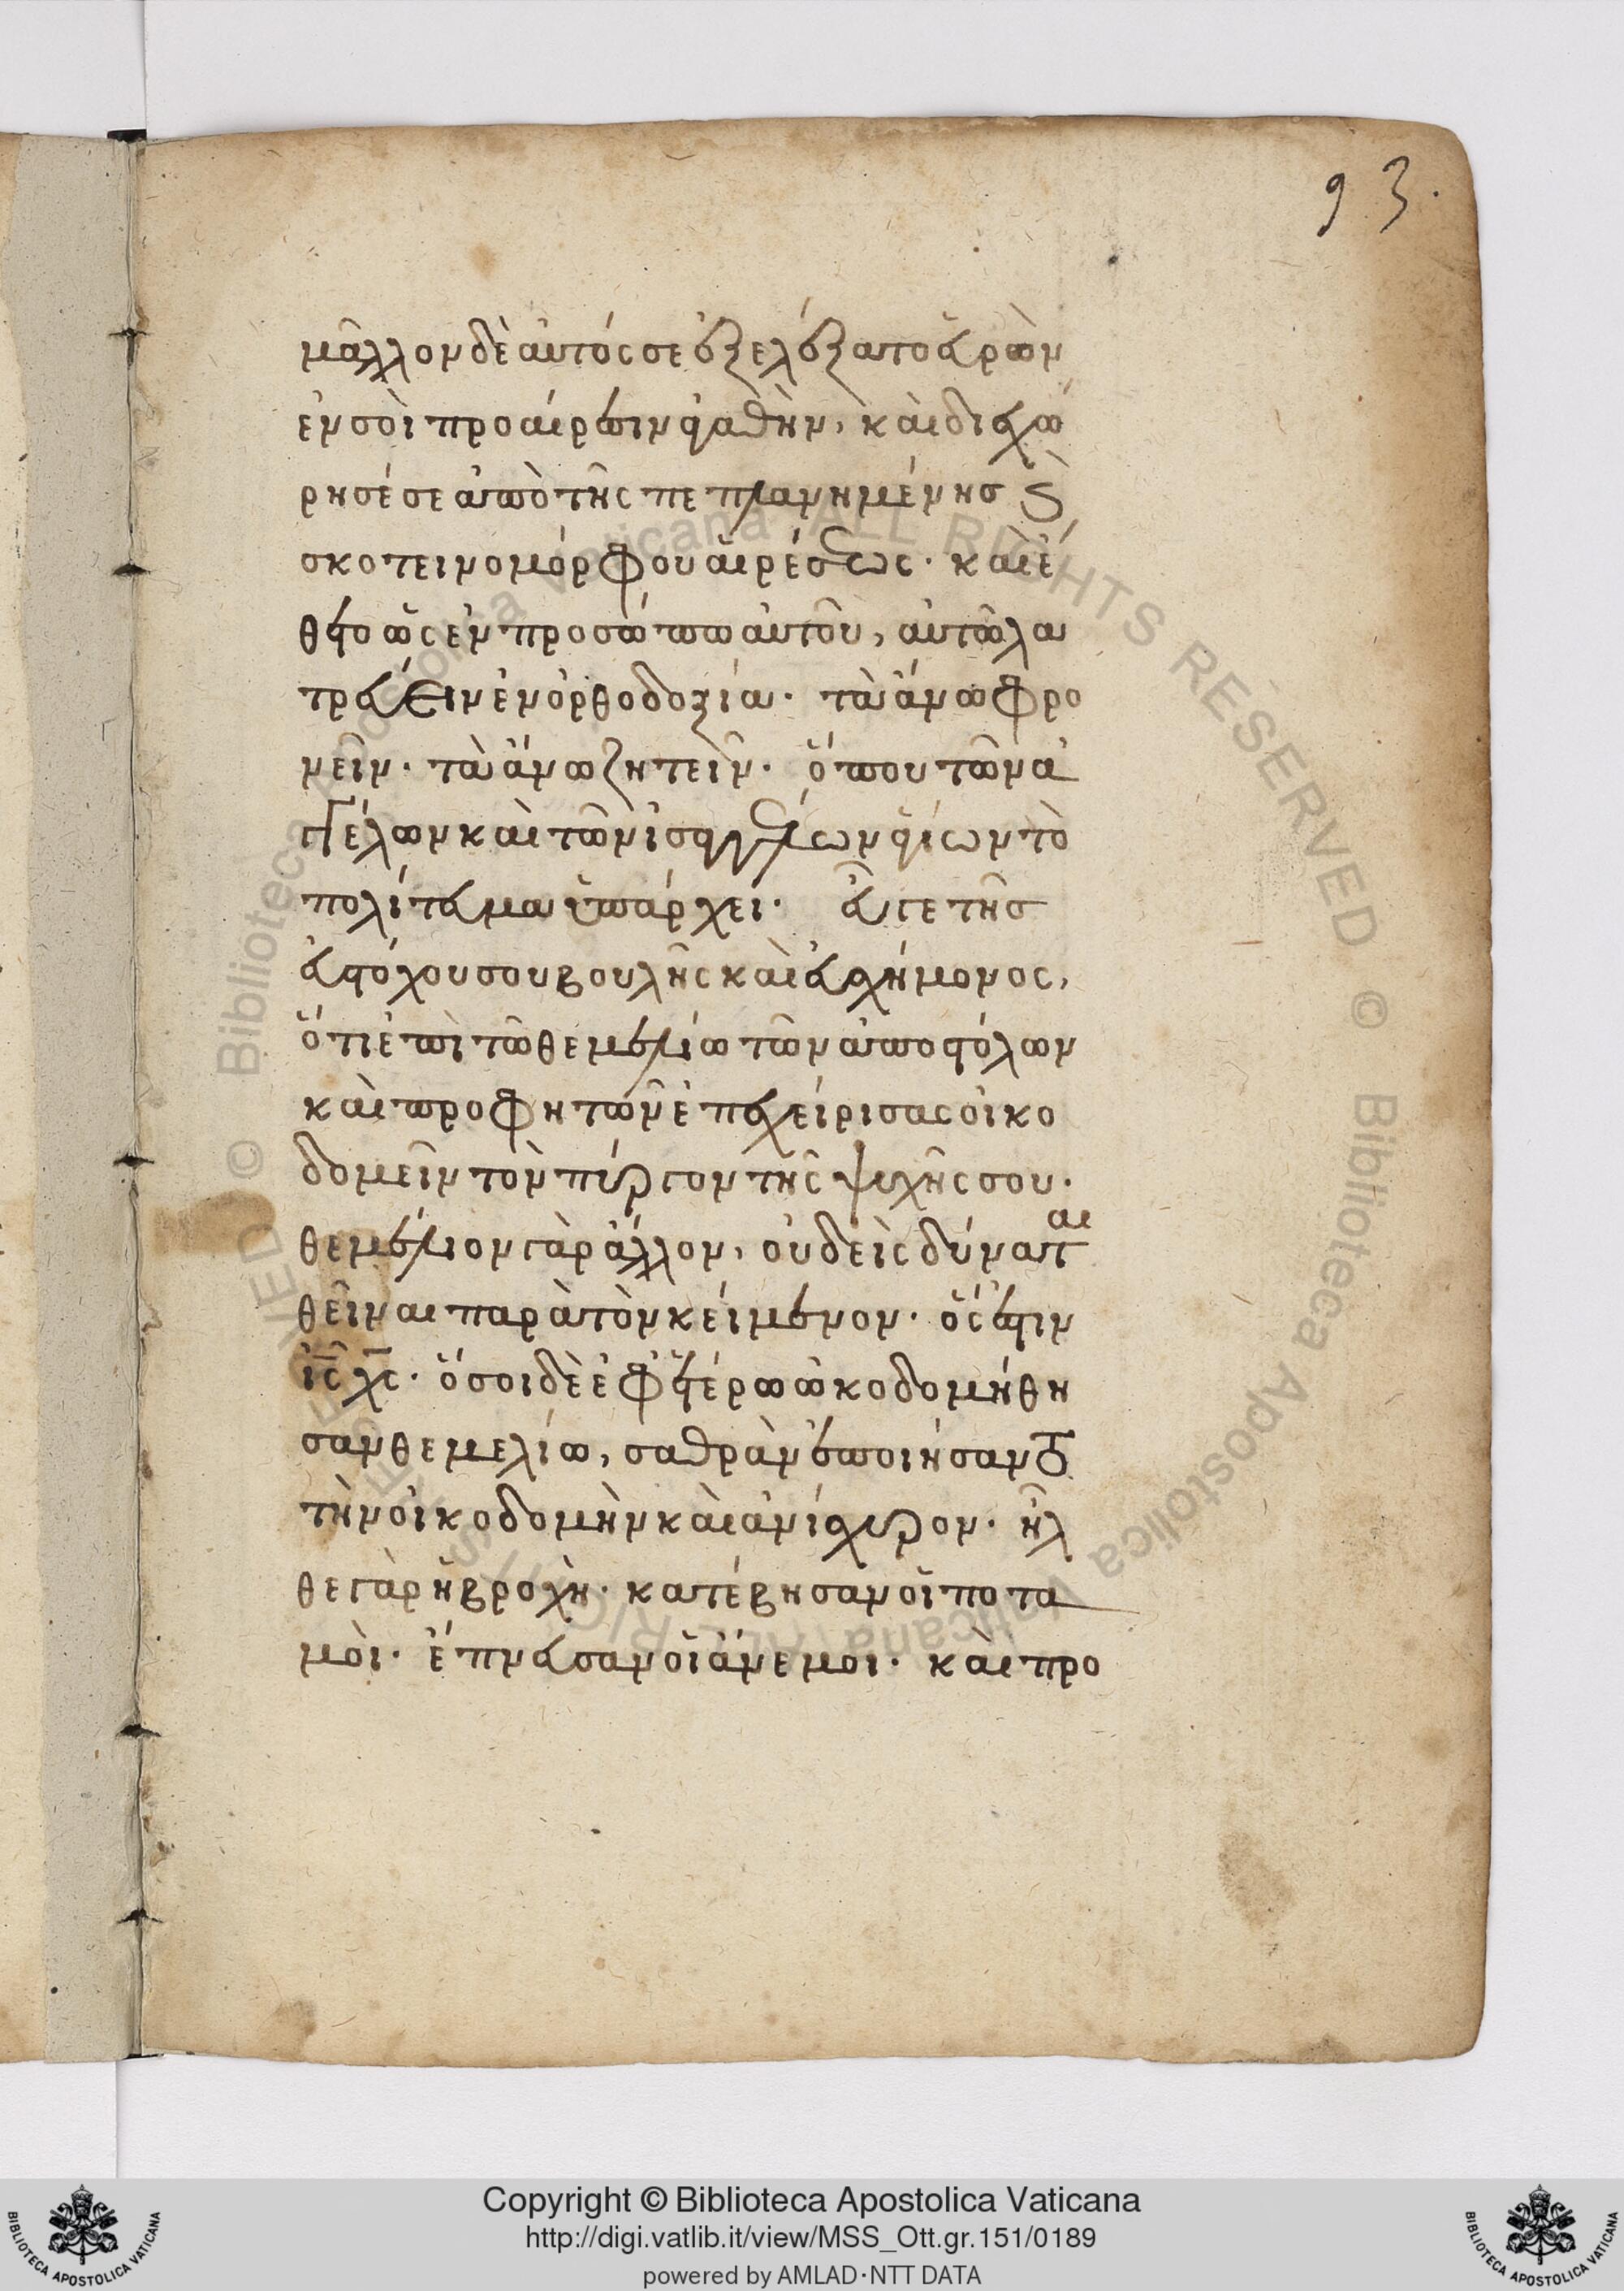 93.
μᾶλλον δὲ αὐτός σε ἐξελέξατο εὑρὼν
ἐν σοὶ προαίρεσιν ἀγαθὴν, καὶ διεχώ
ρησέ σε ἀπὸ τῆς πεπλανημένης ϗ
σκοτεινομόρφου αἱρέσεως. καὶ ἔ
θετο ὡς ἐν προσώπω αὐτοῦ, αὐτῶ λα
τρεύειν ἐν ὀρθοδοξία. τὰ ἄνω φρο
νεῖν. τὰ ἄνω ζητεῖν. ὅπου τῶν ἀγ
γέλων καὶ τῶν ἰσαγγέλων ἁγίων τὸ
πολίτευμα ὑπάρχει. εὖγε τῆς
εὐστόχου σου βουλῆς καὶ εὐσχήμονος,
ὅτι ἐπὶ τῶ θεμελίω τῶν ἀποστόλων
καὶ προφητῶν ἐπεχείρισας οἰκο
δομεῖν τὸν πύργον τῆς ψυχῆς σου.
θεμέλιον γὰρ ἄλλον, οὐδεὶς δύναται
θεῖναι παρὰ τὸν κείμενον. ὅς ἐστιν
ἰς χς. ὅσοι δὲ ἐφ' ἑτέρω ὠκοδομήθη
σαν θεμελίω, σαθρὰν ἐποιήσαντο
τὴν οἰκοδομὴν καὶ ἀνίσχυρον. ἦλ
θε γὰρ ἡ βροχὴ. κατέβησαν οἱ ποτα
μοὶ. ἔπνευσαν οἱ ἄνεμοι. καὶ προ
Copyright © Biblioteca Apostolica Vaticana
http://digi.vatlib.it/view/MSS_Ott.gr.151/0189
powered by AMLAD·NTT DATA
BIBLIOTECA APOSTOLICA VATICANA
BIBLIOTECA APOSTOLICA VATICANA